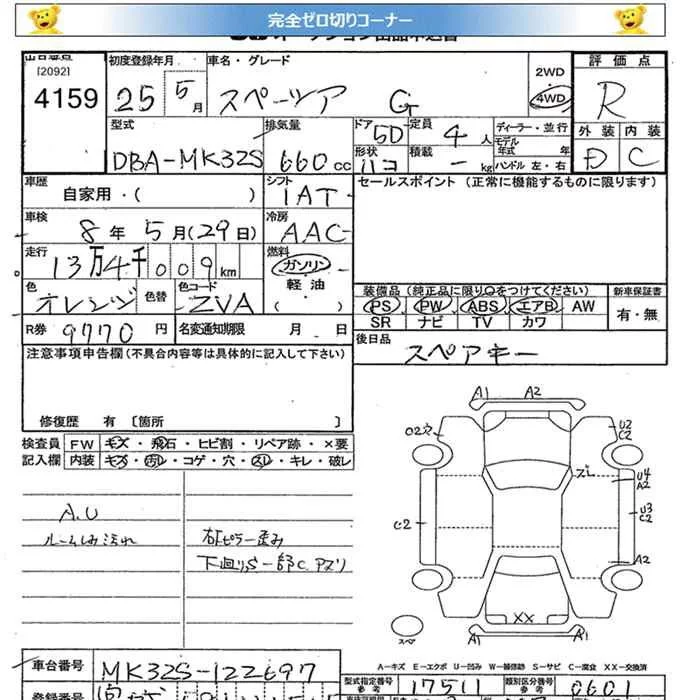 完全ゼロ切りコーナー
[2092]
4159
初度登録年月
25 5月
車名・グレード
スペーツア G
2WD
4WD
評価点
R
外装 内装
D C
型式
DBA-MK32S
排気量
660cc
ドア
5D
形状
ハコ
定員
4人
積載
- kg
ディーラー・並行
モデル年式 年
ハンドル 左・右
車歴
自家用・( )
シフト
IAT
セールスポイント (正常に機能するものに限ります)
車検
8年 5月(29日)
冷房
AAC
走行
13万4千009km
燃料
ガソリン
軽油
( )
色
オレンジ
色替
色コード
ZVA
装備品 (純正品に限り○をつけてください)
PS PW ABS エアB AW
SR ナビ TV カワ
新車保証書
有・無
R券 9770円
名変通知期限 月 日
後日品
スペアキー
注意事項申告欄(不具合内容等は具体的に記入して下さい)
修復歴 有 〔箇所 〕
検査員記入欄
FW キズ・飛石・ヒビ割・リペア跡・×要
内装 キズ・汚れ・コゲ・穴・スレ・キレ・破レ
A.U
ルーム内汚れ
右ピラー歪み
下廻りS 一部C アズリ
A1 A2
U2
C2
ズレ
U4
A2
C2
U3
C2
A2
XX
A1 A1
スペ
A-キズ E-エクボ U-凹み W-補修跡 S-サビ C-腐食 XX-交換済
車台番号
MK32S-122697
型式指定番号
参考
17511
類別区分番号
参考
0601
登録番号